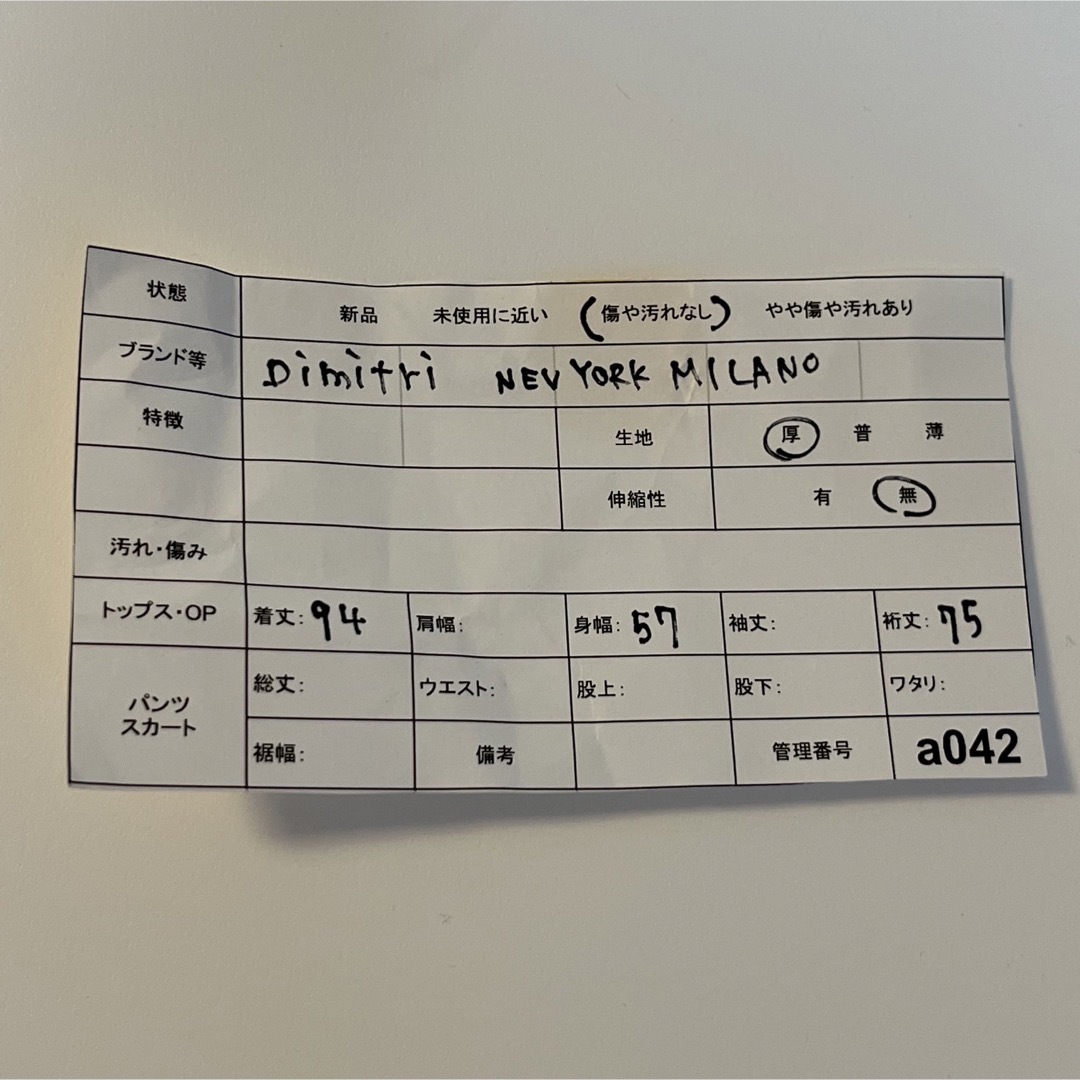 状態 新品 未使用に近い (傷や汚れなし) やや傷や汚れあり
ブランド等 Dimitri NEW YORK MILANO
特徴 生地 厚 普 薄
伸縮性 有 無
汚れ・傷み
トップス・OP 着丈: 94 肩幅: 身幅: 57 袖丈: 裄丈: 75
パンツ スカート 総丈: ウエスト: 股上: 股下: ワタリ:
裾幅: 備考 管理番号 a042